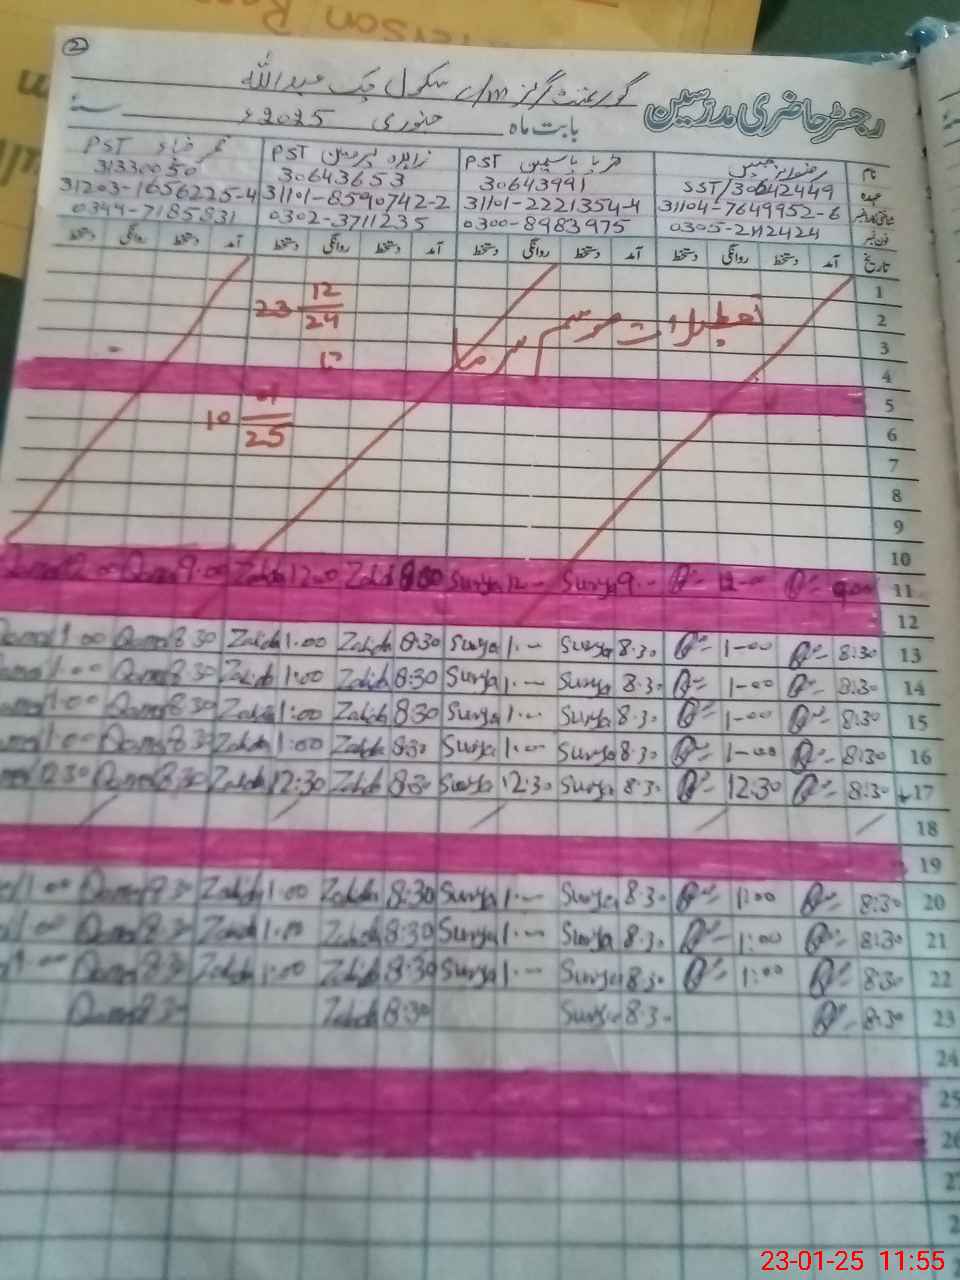 2
گورنمنٹ گرلز m/s سکول چک عبداللہ
رجسٹر حاضری مدرسین
بابت ماہ جنوری 2025ء سنہ
نام ثریا یاسمین PST زاہدہ پروین PST PST
عہدہ SST/30642449 30643991 30643653 31330050
شناختی کارڈ نمبر 31104-7649952-6 31101-2221354-4 31101-8590742-2 31203-1656225-4
فون نمبر 0300-8983975 0302-3711235 0344-7185831
تاریخ آمد دستخط روانگی دستخط آمد دستخط روانگی دستخط آمد دستخط روانگی دستخط آمد دستخط روانگی دستخط
1
2 تعطیلات موسم سرما 23 12/24
3
4 تا
5
6 10 01/25
7
8
9
10
11 9:00 12-00 Surya 9-- Surya 12-- Zahida 9:00 Zahida 12:00 Qamar 9:00 12:00
12
13 8:30 1-00 Surya 8:30 Surya 1-- Zahida 8:30 Zahida 1:00 Qamar 8:30 1:00
14 8:30 1-00 Surya 8:30 Surya 1-- Zahida 8:30 Zahida 1:00 Qamar 8:30 1:00
15 8:30 1-00 Surya 8:30 Surya 1-- Zahida 8:30 Zahida 1:00 Qamar 8:30 1:00
16 8:30 1-00 Surya 8:30 Surya 1-- Zahida 8:30 Zahida 1:00 Qamar 8:30 1:00
17 8:30 12:30 Surya 8:30 Surya 12:30 Zahida 8:30 Zahida 12:30 Qamar 8:30 12:30
18
19
20 8:30 1:00 Surya 8:30 Surya 1-- Zahida 8:30 Zahida 1:00 Qamar 8:30 1:00
21 8:30 1:00 Surya 8:30 Surya 1-- Zahida 8:30 Zahida 1:00 Qamar 8:30 1:00
22 8:30 1:00 Surya 8:30 Surya 1-- Zahida 8:30 Zahida 1:00 Qamar 8:30 1:00
23 8:30 Surya 8:30 Zahida 8:30 Qamar 8:30
24
25
26
23-01-25 11:55